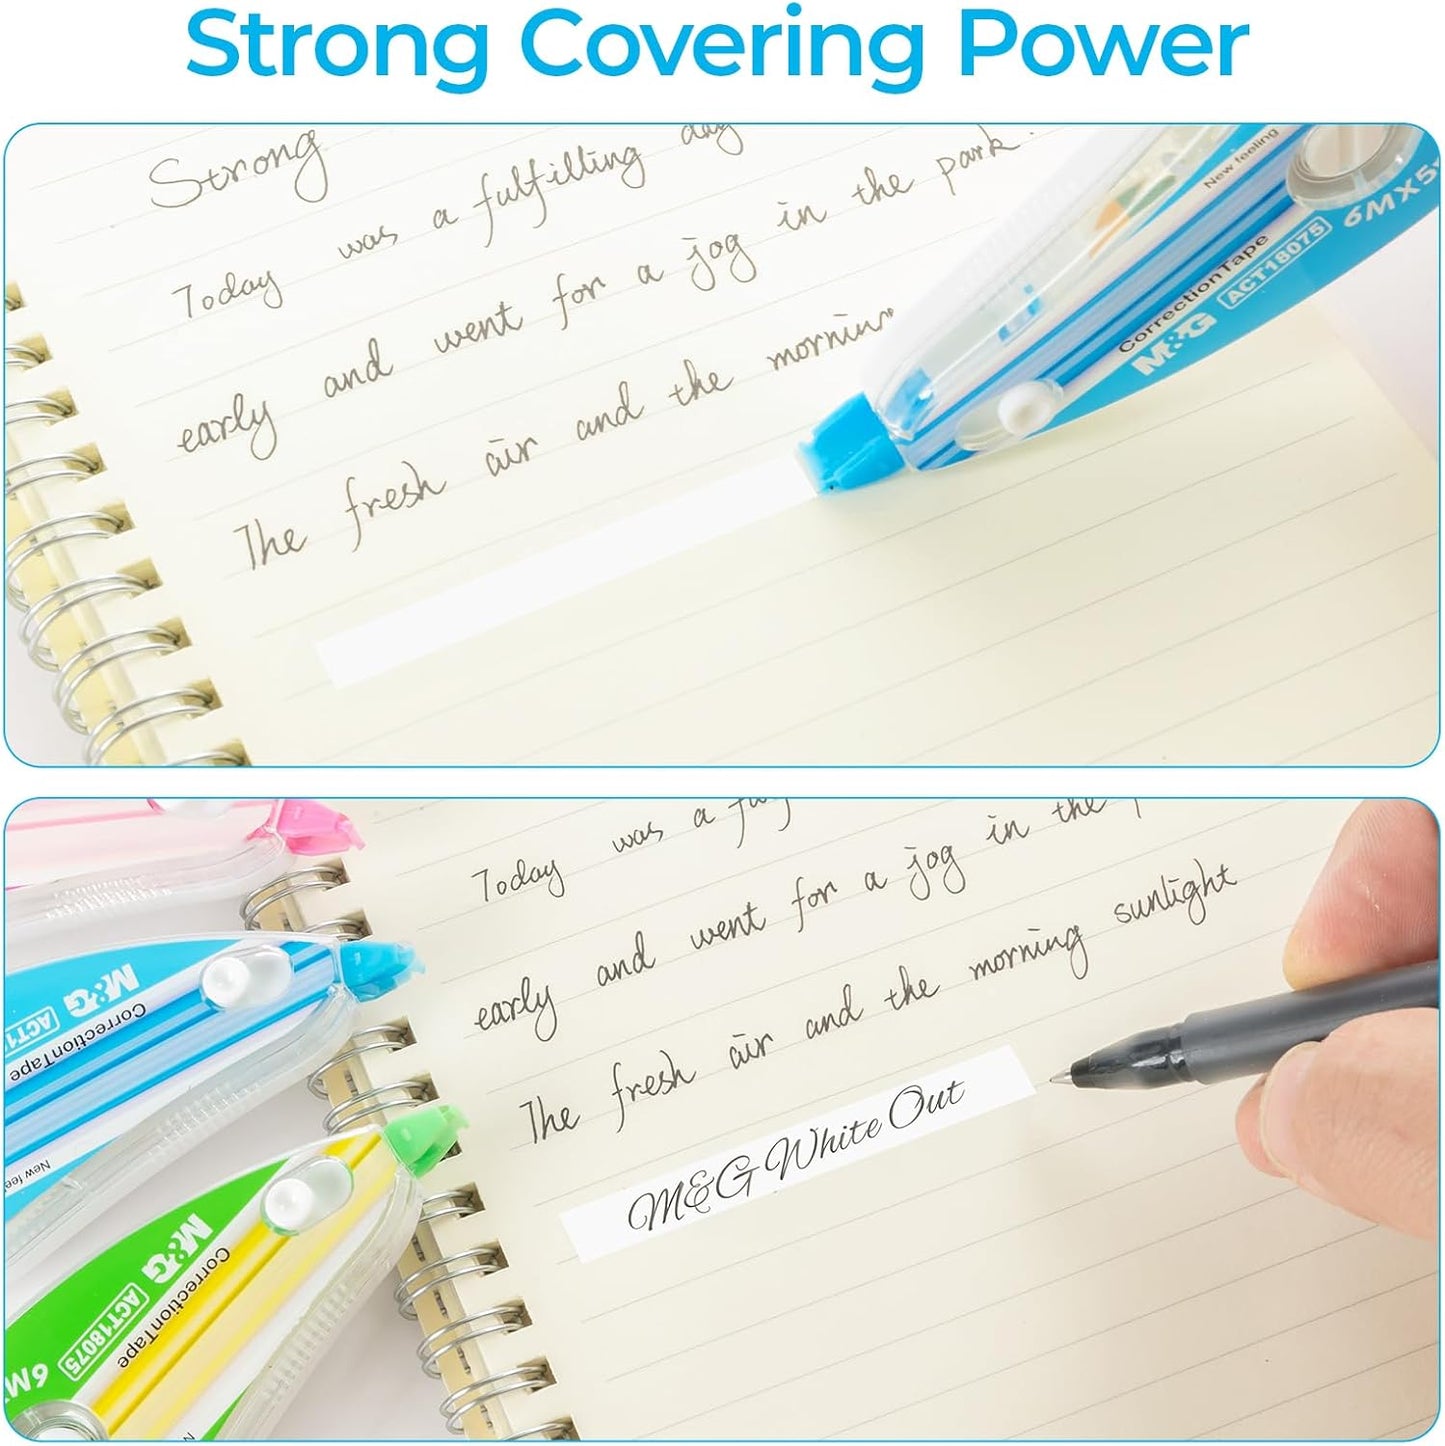 Strong Covering Power
Strong
Today was a fulfilling day
early and went for a jog in the park.
The fresh air and the mornin
New feeling
CorrectionTape
M&G ACT18075 6MX5
Today was a
early and went for a jog in the
The fresh air and the morning sunlight
M&G White Out
M&G ACT1
CorrectionTape
New fee
M&G ACT18075 6M
CorrectionTape
N